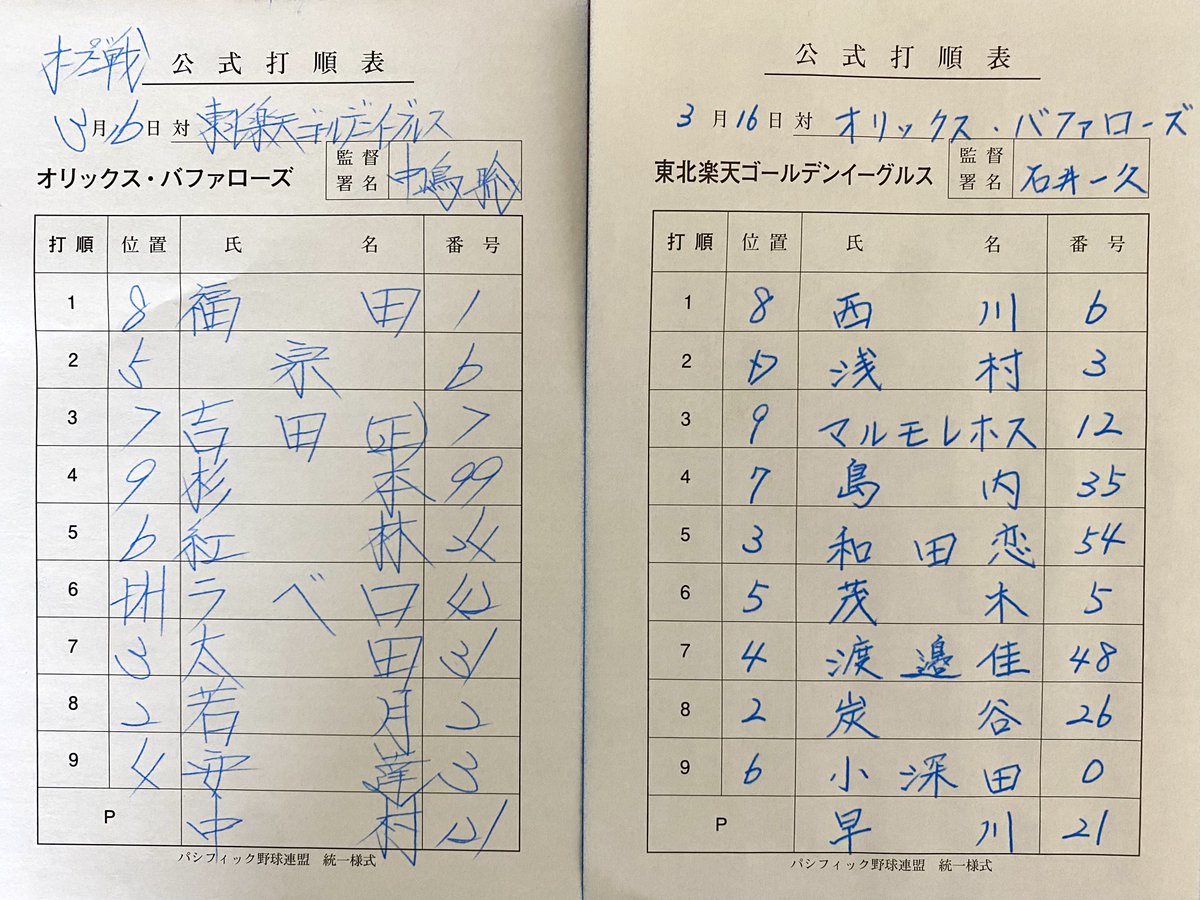 オープン戦
公式打順表
3月16日 対 東北楽天ゴールデンイーグルス
オリックス・バファローズ 監督署名 中嶋聡
打順 位置 氏名 番号
1 8 福田 1
2 5 宗 6
3 7 吉田(正) 7
4 9 杉本 99
5 6 紅林 24
6 指 ラベロ 42
7 3 太田 31
8 2 若月 2
9 4 安達 3
P 中村 21
パシフィック野球連盟 統一様式
公式打順表
3月16日 対 オリックス・バファローズ
東北楽天ゴールデンイーグルス 監督署名 石井一久
打順 位置 氏名 番号
1 8 西川 6
2 D 浅村 3
3 9 マルモレホス 12
4 7 島内 35
5 3 和田恋 54
6 5 茂木 5
7 4 渡邊佳 48
8 2 炭谷 26
9 6 小深田 0
P 早川 21
パシフィック野球連盟 統一様式